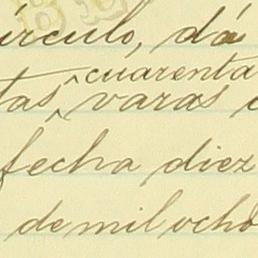 írculo, dá
cuarenta
tas ^ varas
fecha diez
de mil ocho